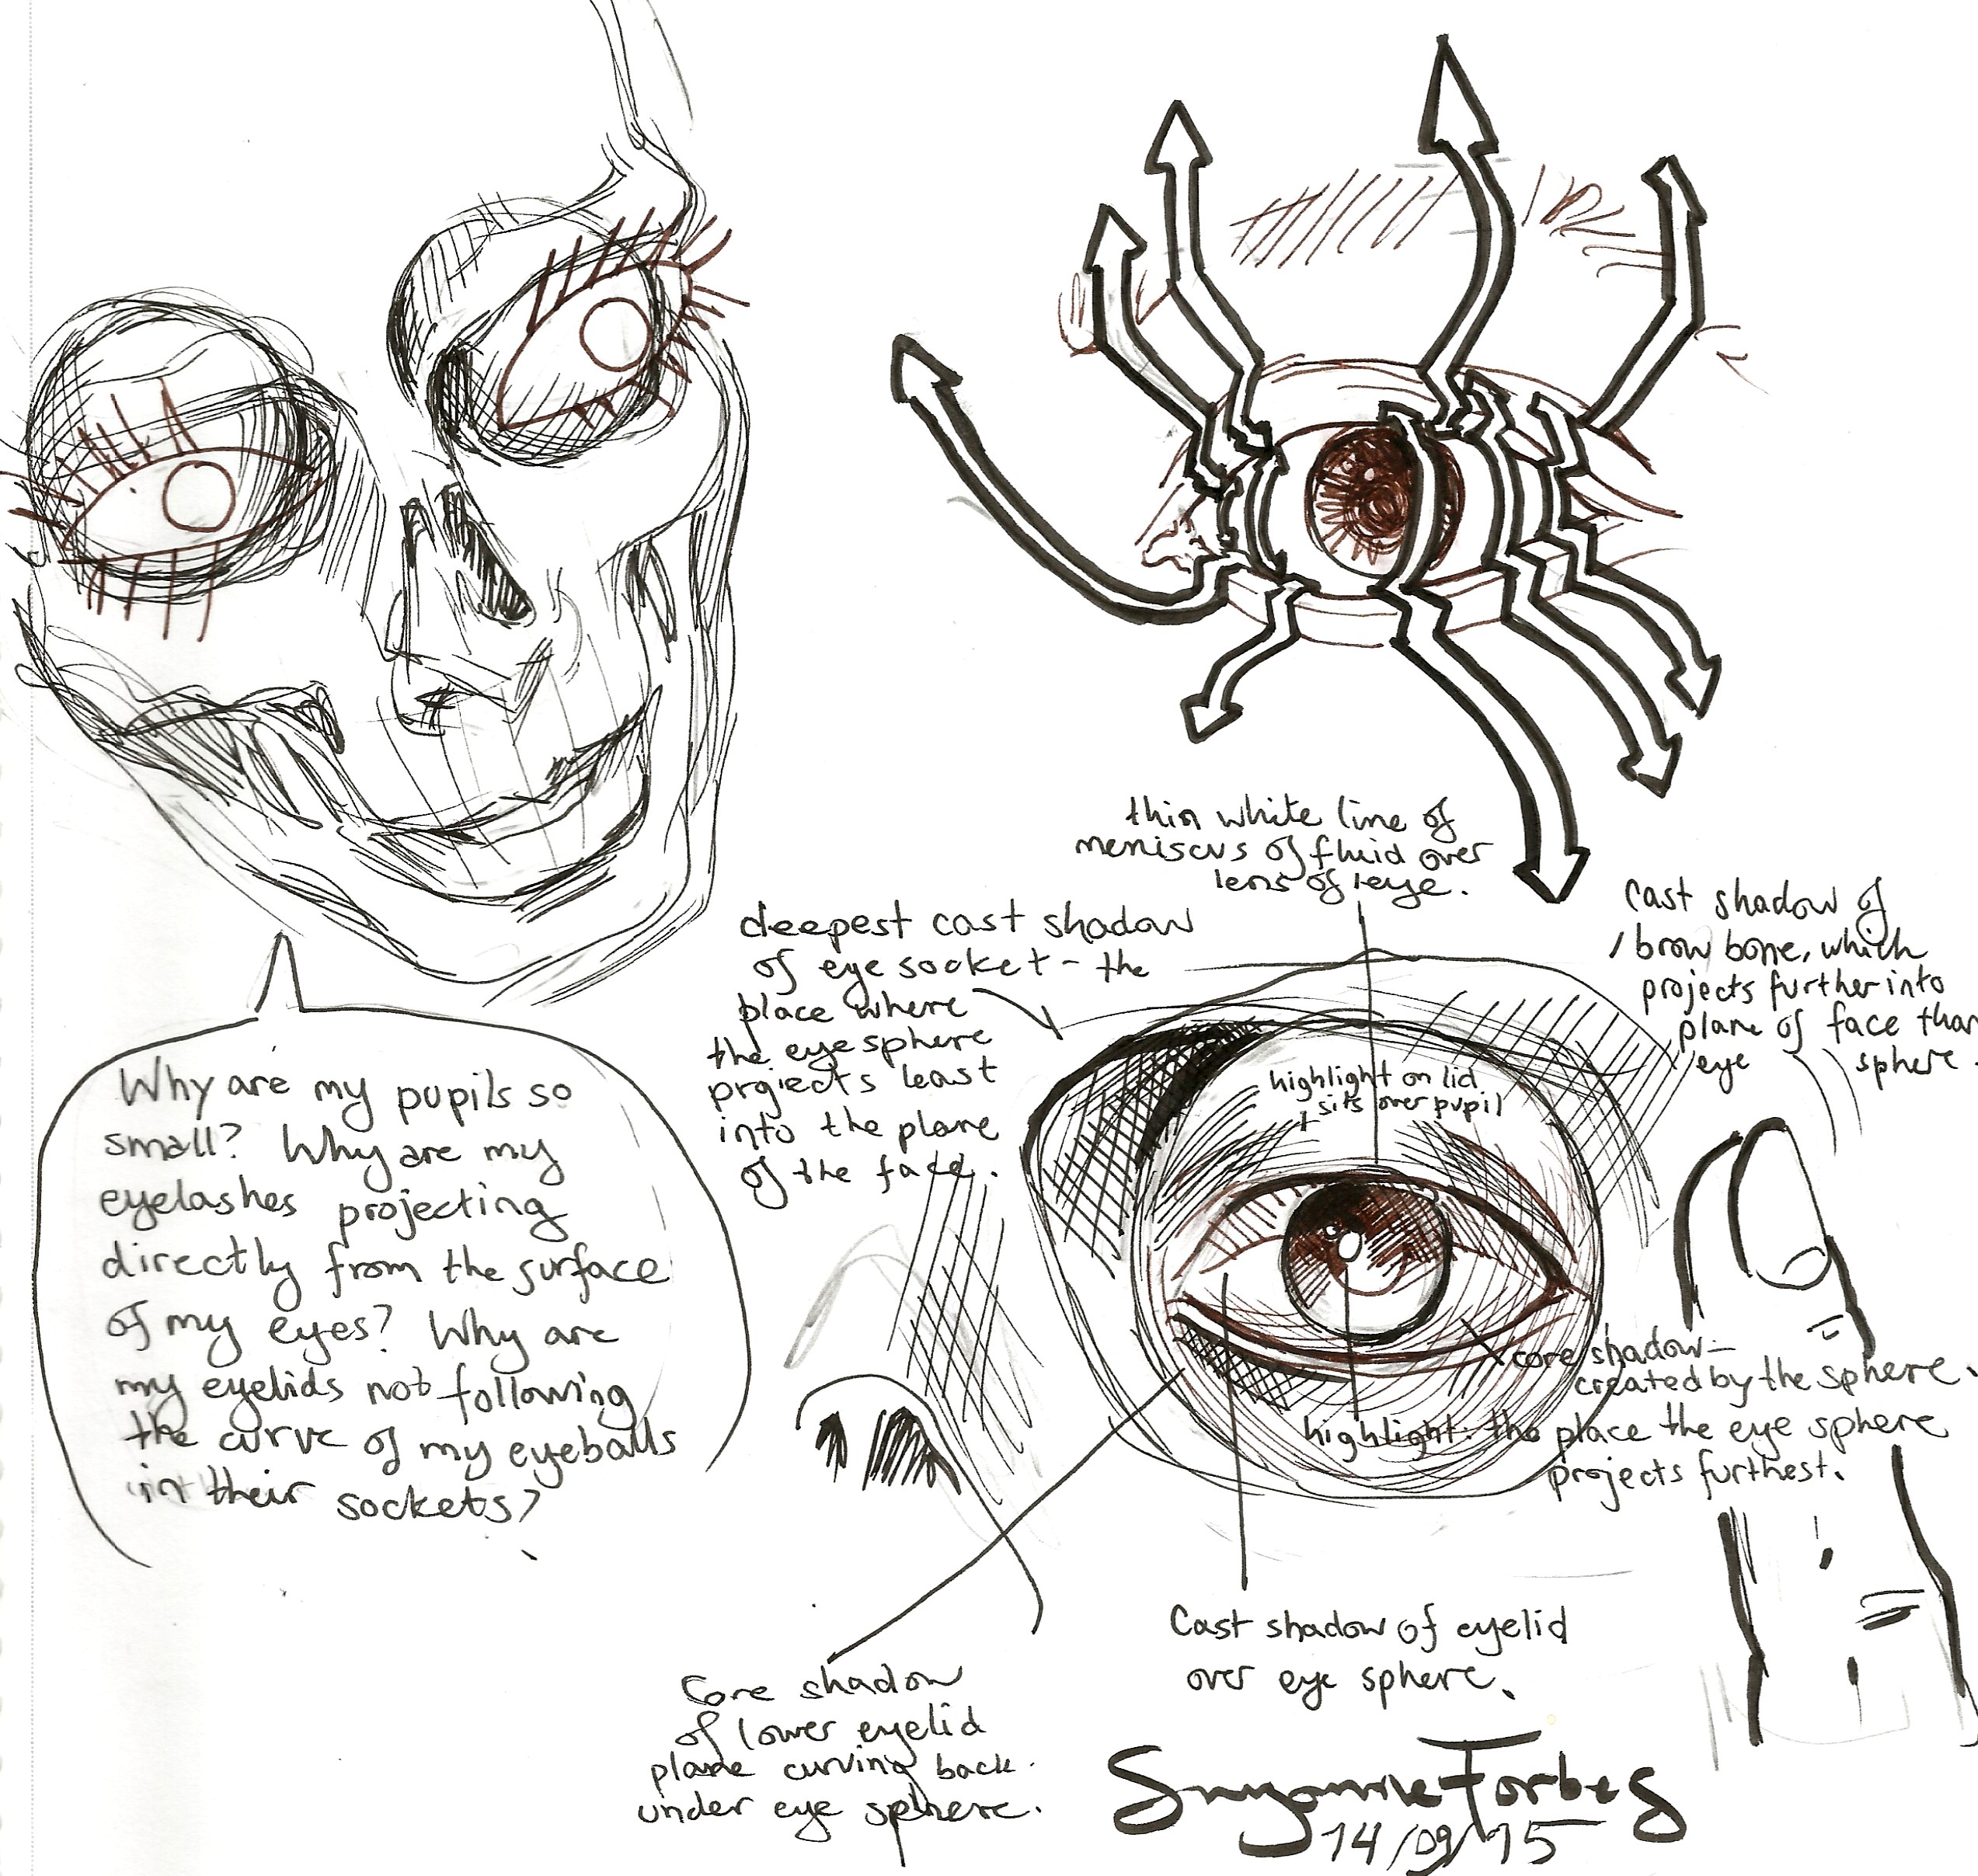 thin white line of
meniscus of fluid over
lens of eye.
deepest cast shadow
of eye socket - the
place where
the eye sphere
projects least
into the plane
of the face.
cast shadow of
brow bone, which
projects further into
plane of face than
eye sphere.
highlight on lid
sits over pupil
Why are my pupils so
small? Why are my
eyelashes projecting
directly from the surface
of my eyes? Why are
my eyelids not following
the curve of my eyeballs
in their sockets?
core shadow -
created by the sphere.
highlight: the place the eye sphere
projects furthest.
Cast shadow of eyelid
over eye sphere.
Core shadow
of lower eyelid
plane curving back
under eye sphere.
Suzanne Forbes
14/09/15